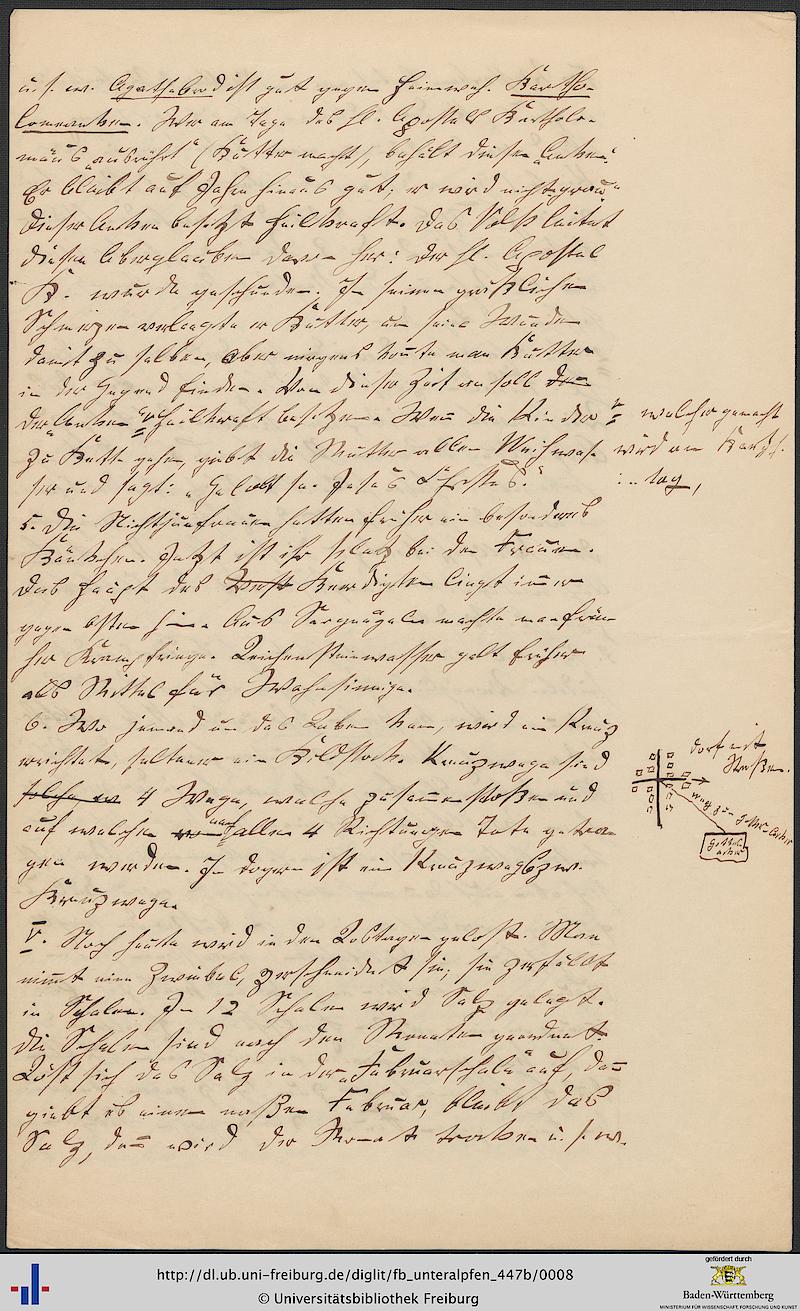 u. s. w. Agathabrod ist gut gegen Heimweh. Bartho-
lomeanken. Wer am Tage des hl. Apostels Bartholo-
mäus "ausrührt" (Butter macht), behält diesen "Anken".
Er bleibt auf Jahre hinaus gut; er wird nicht "grau".
Dieser Anken besitzt Heilkraft. Das Volk leitet
diesen Aberglauben davon her: Der hl. Apostel
B. wurde geschunden. In seinen gräßlichen
Schmerzen verlangte er Butter, um seine Wunden
damit zu salben, aber nirgends konnte man Butter
in der Gegend finden. Von dieser Zeit an soll
der "Anken" Heilkraft besitzen. Wenn die Kinder
zu Bett gehen, giebt die Mutter allen Weihwas-
ser und sagt: "Gelobt sei Jesus Christus."
welcher gemacht
wird am Barth.
tag,
5. Die Nichtjungfrauen hatten früher ein besonderes
Bänkchen. Jetzt ist ihr Platz bei den Frauen.
Das Haupt des Beerdigten liegt immer
gegen Osten hin. Aus Sargnägeln machte man frü-
her Krampfringe. Leichensteinwasser galt früher
als Mittel für Wahnsinnige.
6. Wo jemand um das Leben kam, wird ein Kreuz
errichtet, seltener ein Bildstock. Kreuzwege sind
solche 4 Wege, welche zusammenstoßen und
auf welchen nach allen 4 Richtungen Tote getra-
gen werden. In Dogern ist ein Kreuzweg bzw.
Kreuzwege.
Dorf mit
Straßen.
Weg zum Gottesacker
Gottes
acker
V. Noch heute wird in den Lostagen gelost. Man
nimmt eine Zwiebel, zerschneidet sie; sie zerfällt
in Schalen. In 12 Schalen wird Salz gelegt.
Die Schalen sind nach den Monaten geordnet.
Löst sich das Salz in der "Februarschale" auf, dann
giebt es einen nassen Februar, bleibt das
Salz, dann wird der Monat trocken u. s. w.
http://dl.ub.uni-freiburg.de/diglit/fb_unteralpfen_447b/0008
© Universitätsbibliothek Freiburg
gefördert durch
Baden-Württemberg
MINISTERIUM FÜR WISSENSCHAFT, FORSCHUNG UND KUNST